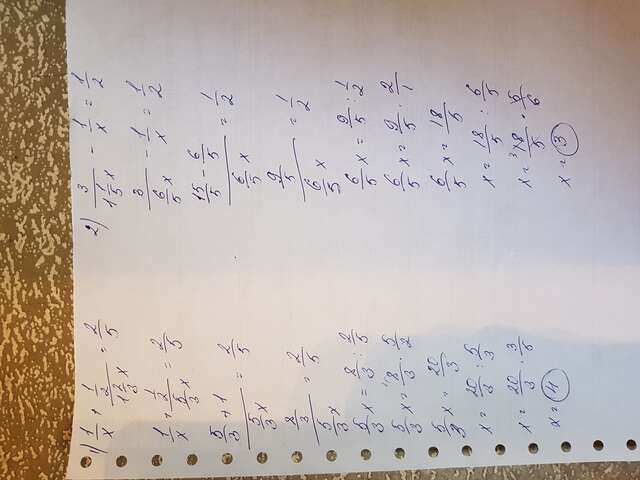 1) 1/x + (1/2)/(1 2/3 x) = 2/5
1/x + (1/2)/(5/3 x) = 2/5
(5/3 + 1)/(5/3 x) = 2/5
(8/3)/(5/3 x) = 2/5
5/3 x = 8/3 : 2/5
5/3 x = 8/3 · 5/2
5/3 x = 20/3
x = 20/3 : 5/3
x = 20/3 · 3/5
x = 4
2) 3/(1 1/5 x) - 1/x = 1/2
3/(6/5 x) - 1/x = 1/2
(15/5 - 6/5)/(6/5 x) = 1/2
(9/5)/(6/5 x) = 1/2
6/5 x = 9/5 : 1/2
6/5 x = 9/5 · 2/1
6/5 x = 18/5
x = 18/5 : 6/5
x = 18/5 · 5/6
x = 3